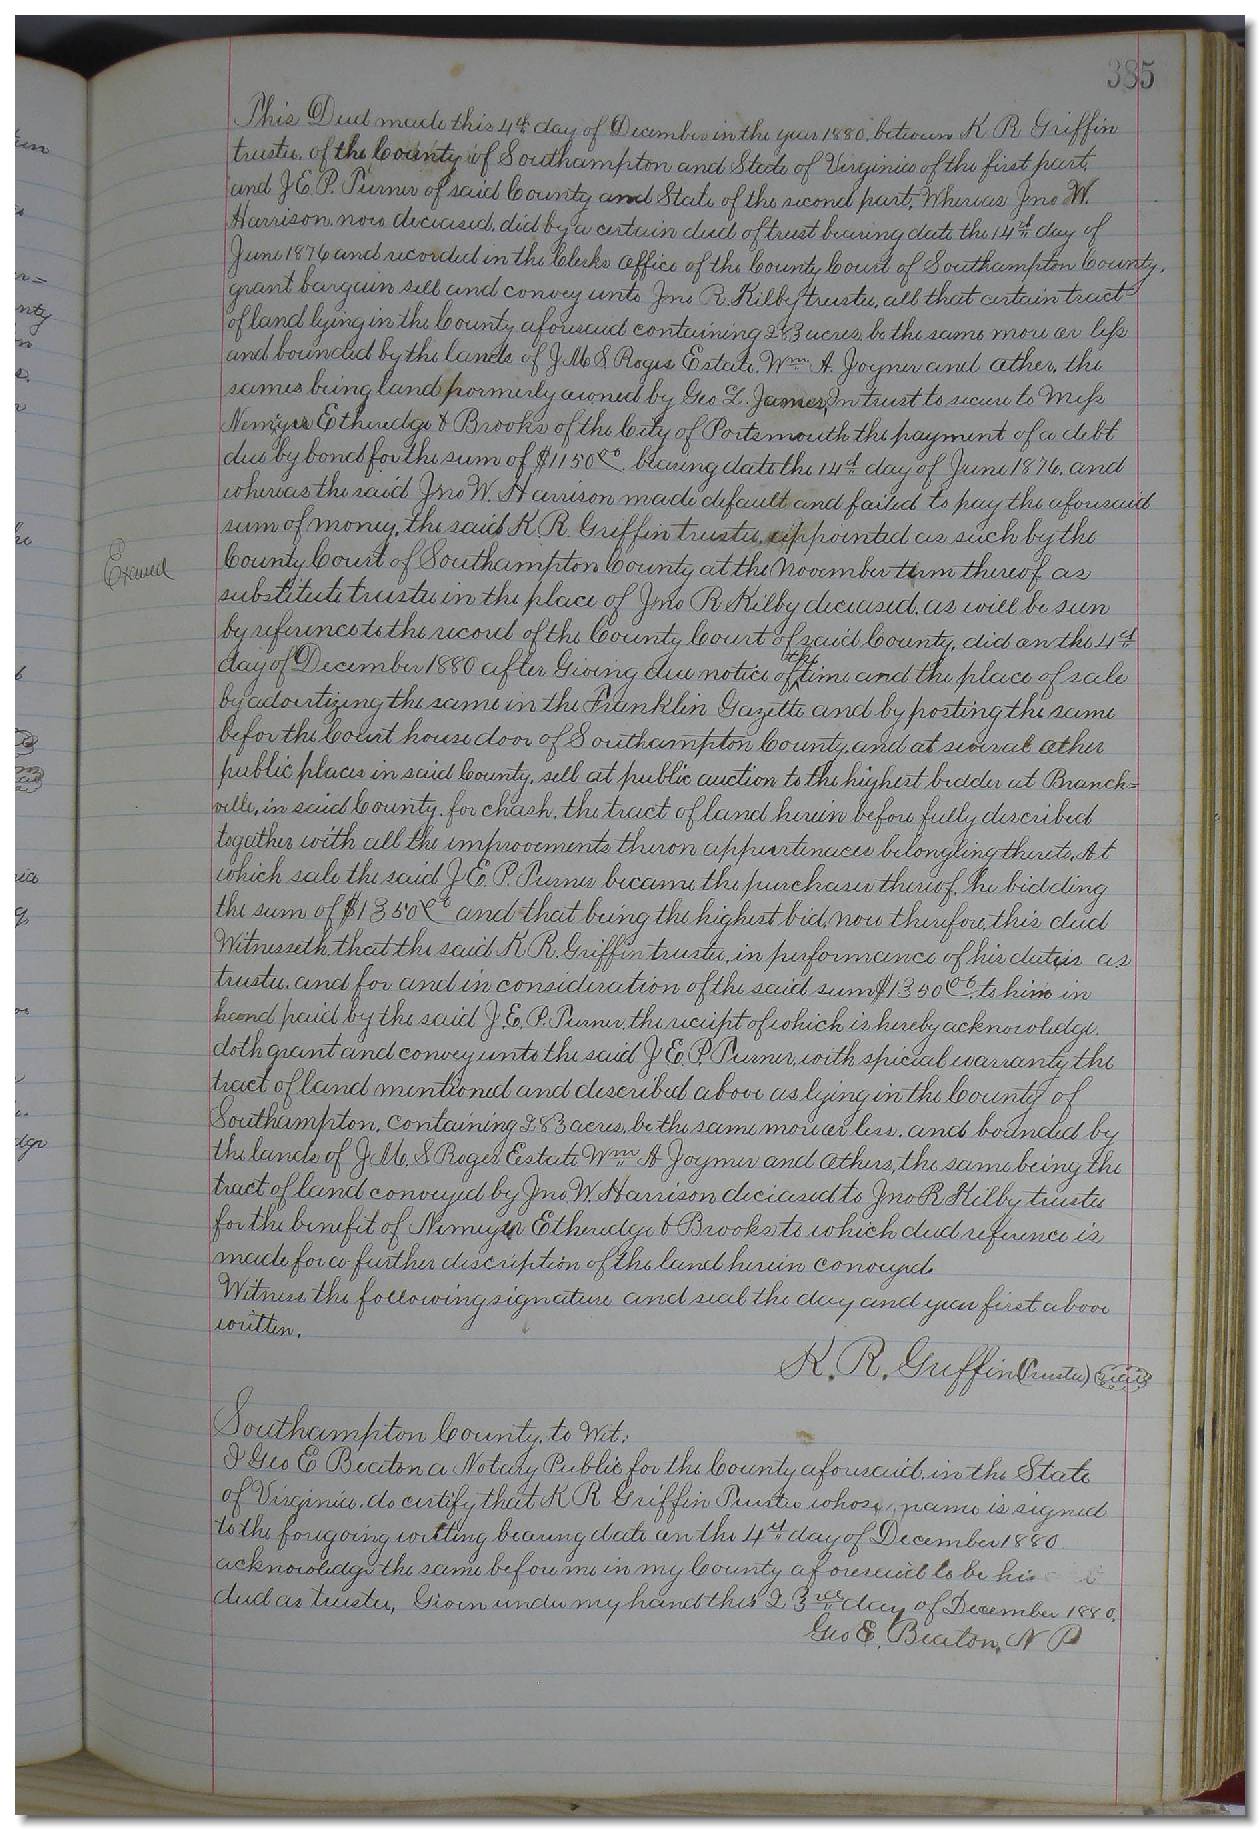 385
This Deed made this 4th day of December in the year 1880. between K R Griffin
trustee. of the County of Southampton and State of Virginia of the first part.
and J. E. P. Turner of said County and State of the second part, Whereas Jno W.
Harrison now deceased, did by a certain deed of trust bearing date the 14th day of
June 1876 and recorded in the Clerks Office of the County Court of Southampton County,
grant bargain sell and convey unto Jno R. Kilby trustee, all that certain tract
of land lying in the County aforesaid containing 283 acres, be the same more or less
and bounded by the lands of J. M. S Roges Estate, Wm A. Joyner and other, the
sames being land formerly owned by Geo L. James, In trust to secure to Mess
Nemyer Etheredge & Brooks of the City of Portsmouth the payment of a debt
due by bond for the sum of $1150 00 bearing date the 14th day of June 1876. and
whereas the said Jno W. Harrison made default and failed to pay the aforesaid
sum of money, the said K. R. Griffin trustee, appointed as such by the
Excused
County Court of Southampton County at the November term thereof as
substitute trustee in the place of Jno R Kilby deceased. as will be seen
by reference to the record of the County Court of said County, did on the 4th
day of December 1880 after Giving due notice of the time and the place of sale
by advertizing the same in the Franklin Gazette and by posting the same
befor the Court house door of Southampton County, and at several other
public places in said County, sell at public auction to the highest bidder at Branch=
ville, in said County. for chash, the tract of land herein before fully described
together with all the improvements theron appurtenaces belongling thereto, At
which sale the said J. E. P. Turner became the purchaser thereof, he bidding
the sum of $1350 00 and that being the highest bid, now therefore, this deed
Witnesseth, that the said K. R. Griffin trustee, in performance of his duties as
trustee, and for and in consideration of the said sum $1350 00 to him in
hand paid by the said J. E. P. Turner, the receipt of which is hereby acknowledge,
doth grant and convey unto the said J. E. P. Turner, with special warranty the
tract of land mentioned and described above as lying in the County of
Southampton, containing 283 acres, be the same more or less, and bounded by
the lands of J. M. S Roges Estate Wm A Joymer and others, the same being the
tract of land conveyed by Jno. W. Harrison deciased to Jno R Kilby trustee
for the benefit of Nemeyer Etheredge & Brooks, to which deed reference is
made for a further discription of the land herein conveyed.
Witness the following signature and seal the day and year first above
written.
K. R. Griffin (Trustee) Seal
Southampton County, to Wit:
I Geo E Beaton a Notary Public for the County aforesaid, in the State
of Virginia, do certify that K R Griffin Trustee whose, name is signed
to the foregoing writing bearing date on the 4th day of December 1880
acknowledge the same before me in my County aforesaid to be his
deed as trustee, Given under my hand this 23rd day of December 1880.
Geo E. Beaton, N P